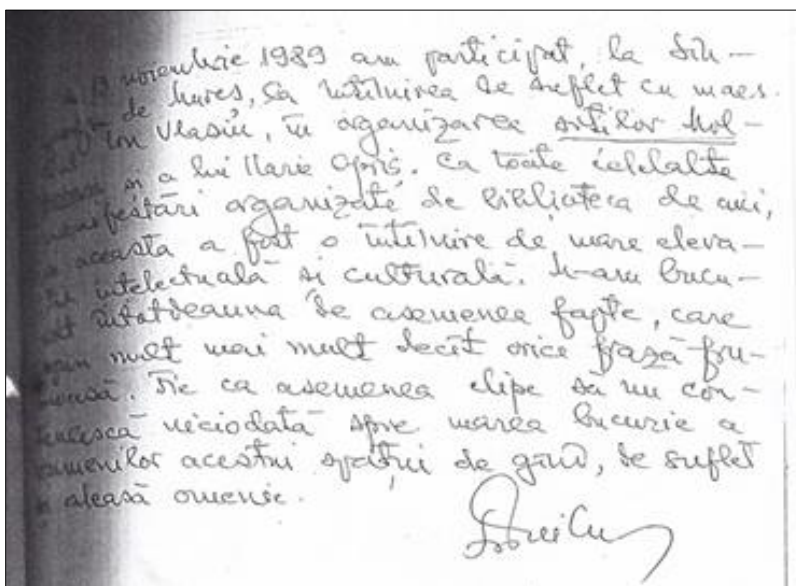 13 noiembrie 1989 am participat, la Sîn-
de Mureș, la întîlnirea de suflet cu maes-
Ion Vlasiu, în organizarea soților Mol-
și a lui Ilarie Opriș. Ca toate celelalte
festări organizate de biblioteca de aici,
aceasta a fost o întîlnire de mare eleva-
intelectuală și culturală. M-am bucu-
întotdeauna de asemenea fapte, care
mult mai mult decît orice frază fru-
moasă. Fie ca asemenea clipe să nu con-
tenească niciodată spre marea bucurie a
oamenilor acestui spațiu de gînd, de suflet
aleasă omenie.